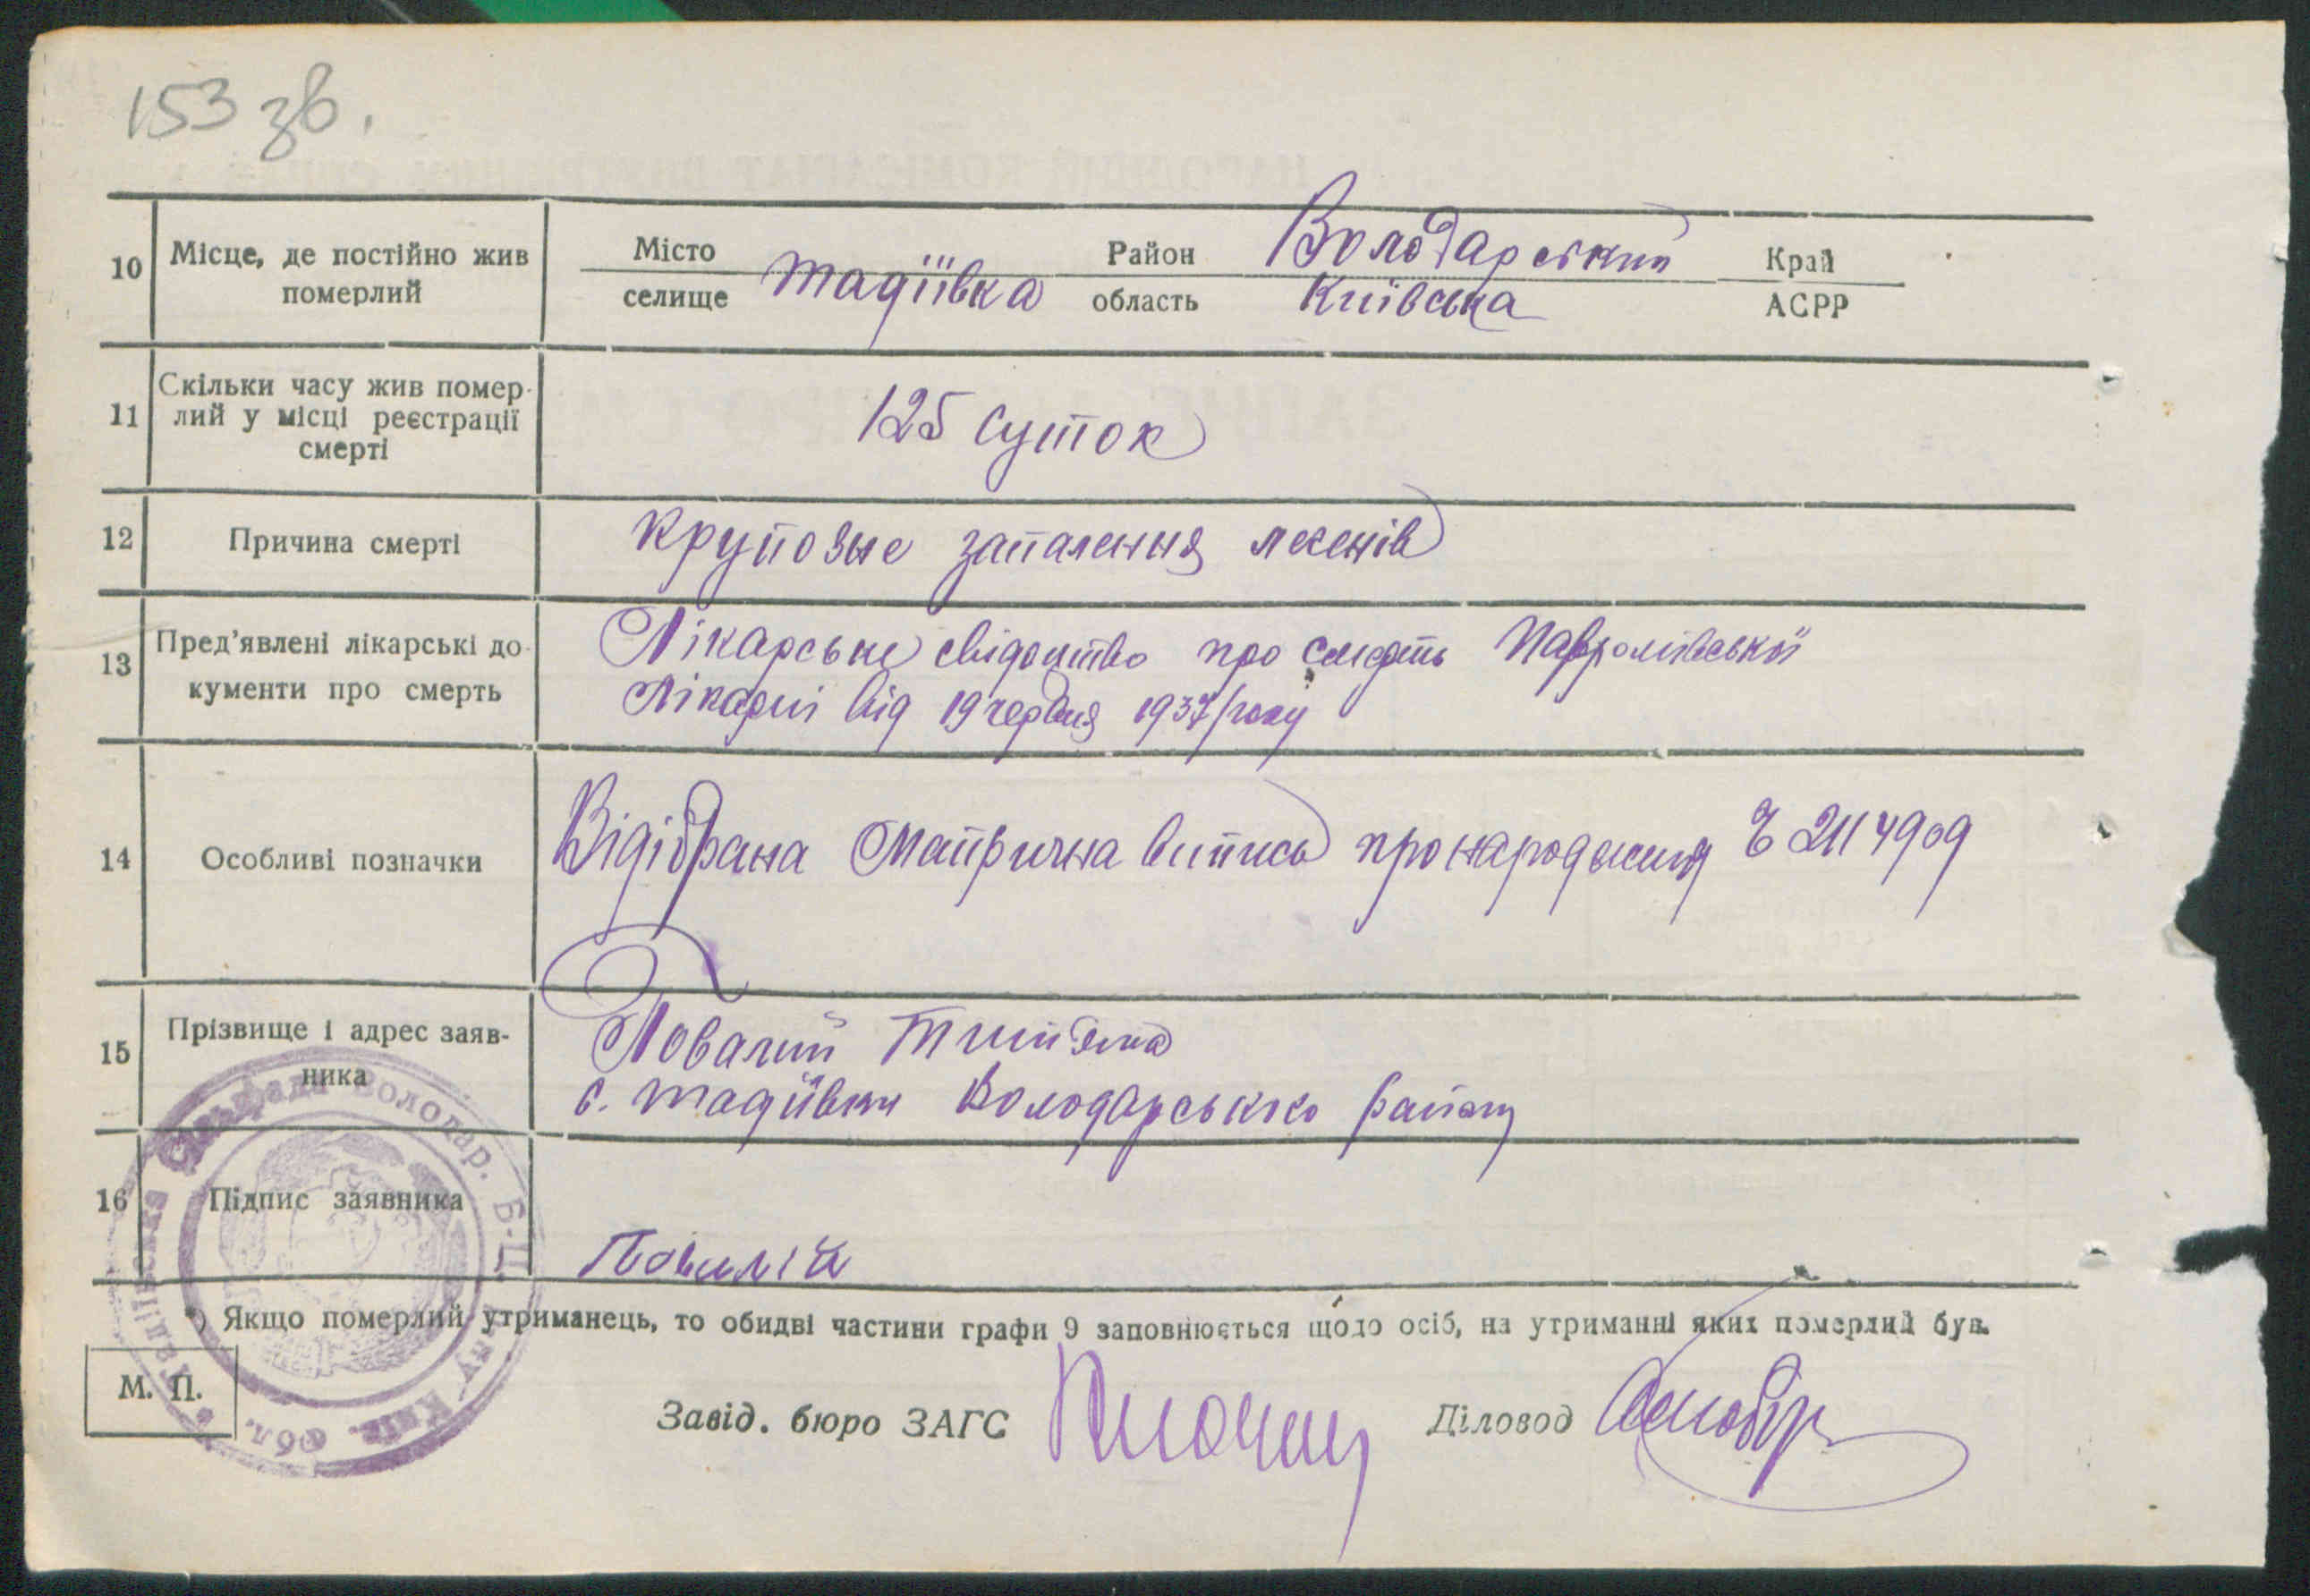 153 зв.
10 Місце, де постійно жив померлий
Місто селище Тадіївка Район Володарський область Київська Край АСРР
11 Скільки часу жив помер-
лий у місці реєстрації
смерті
125 суток
12 Причина смерті
крупозне запалення легенів
13 Пред'явлені лікарські до-
кументи про смерть
Лікарське свідоцтво про смерть
Лікарні від 19 червня 1937 року
14 Особливі позначки
Відібрана Матрична випись про народження Ч 2114909
15 Прізвище і адрес заяв-
ника
Повалій
с. Тадіївки Володарського району
16 Підпис заявника
Повалій
*) Якщо померлий утриманець, то обидві частини графи 9 заповнюється щодо осіб, на утриманні яких померлий був.
М. П.
Завід. бюро ЗАГС
Діловод
Тадіївська Сільрада Володар. Б-Ц. Київ. Обл.